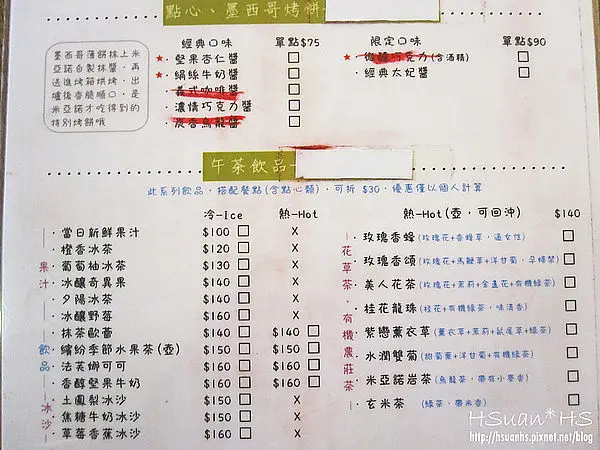 點心、墨西哥烤餅
墨西哥薄餅抹上米
亞諾自製抹醬，再
送進烤箱烘烤，出
爐後香脆順口，是
米亞諾才吃得到的
特別烤餅哦
經典口味 單點$75
★·堅果杏仁醬
★·絹絲牛奶醬
·義式咖啡醬
·濃情巧克力醬
·炭香烏龍醬
限定口味 單點$90
★·微醺巧克力(含酒精)
·經典太妃醬
午茶飲品
此系列飲品，搭配餐點(含點心類)，可折 $30，優惠僅以個人計算
冷-Ice 熱-Hot
果汁
·當日新鮮果汁 $100 X
·橙香冰茶 $120 X
·葡萄柚冰茶 $130 X
·冰釀奇異果 $140 X
·夕陽冰茶 $140 X
·冰釀野莓 $160 X
飲品
·抹茶歐蕾 $140 $140
·繽紛季節水果茶(壺) $150 $150
·法芙娜可可 $160 $160
·香醇堅果牛奶 $160 $160
冰沙
·土鳳梨冰沙 $150 X
·焦糖牛奶冰沙 $150 X
·草莓香蕉冰沙 $160 X
熱-Hot(壺，可回沖) $140
花草茶·有機農莊茶
·玫瑰香蜂(玫瑰花+香蜂草，適女性)
·玫瑰香頌(玫瑰花+馬鞭草+洋甘菊，孕婦禁)
·美人花茶(玫瑰花+茉莉+金盞花+有機綠茶)
·桂花龍珠(桂花+有機綠茶，味清香)
·紫戀薰衣草(薰衣草+茉莉+鼠尾草+綠茶)
·水潤雙菊(甜菊葉+洋甘菊+有機綠茶)
·米亞諾岩茶(烏龍茶，帶有小麥香)
·玄米茶(綠茶，帶米香)
HSuan*HS
http://hsuanhs.pixnet.net/blog